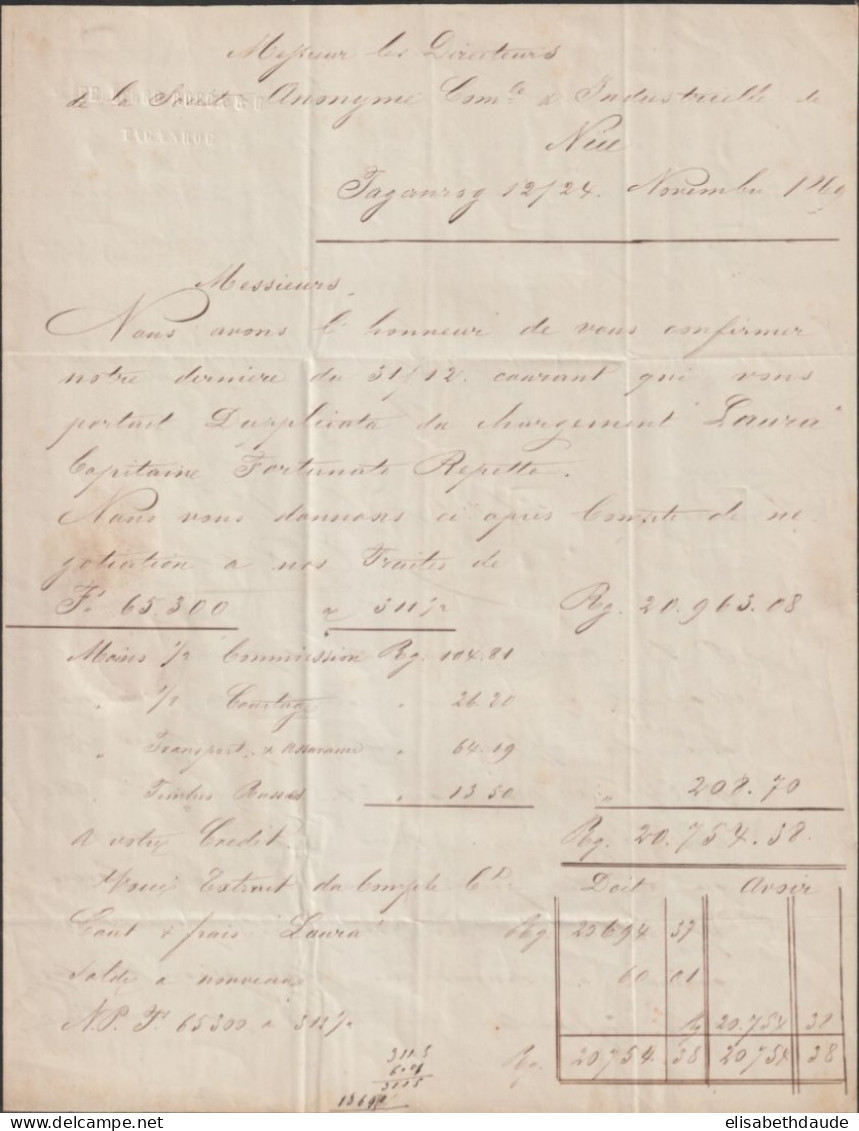 Messieur les Directeurs
de la Société Anonyme Com.le & Industrielle de
Nice
TAGANROG
Taganrog 12/24. Novembre 1869
Messieurs,
Nous avons l'honneur de vous confirmer
notre derniere du 31/12. courant qui vous
portait Dupplicata du chargement "Laura"
Capitaine Fortunato Repetto.
Nous vous donnons ci après Compte de ne
gotiation a nos Traites de
Fs. 65.300 a 311½ Rg. 20.963.08
Moins ½ Commission Rg. 104.81
" ⅛ Courtage " 26.20
" Transport & assurance " 64.19
Timbres Russes " 13.50 " 208.70
a votre Credit. Rg. 20.754.38.
Extrait du Compte Ct. Doit Avoir
Cout & frais "Laura" Rg. 20694 37
Solde a nouveau 60 01
N.P. Fs 65300 a 311½ " Rg 20.754 38
Rg. 20754. 38 20754 38
311.5
3115
elisabethdaude - delcampe.net